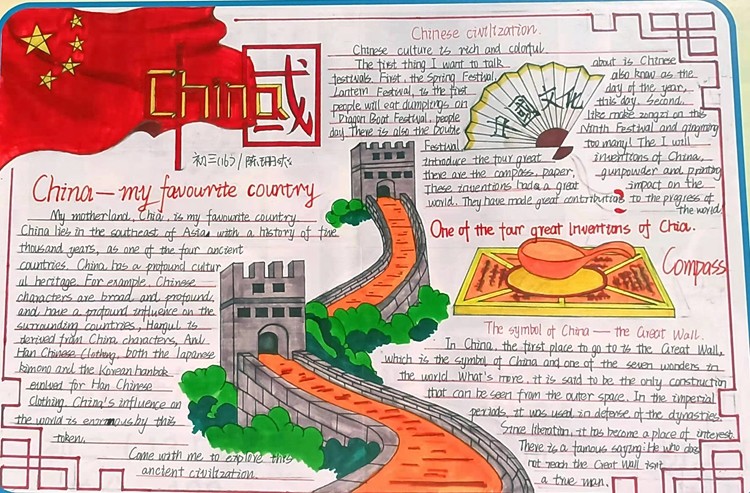 China
國
初三(16)/陈
China—my favourite country
My motherland, Chia, is my favourite country.
China lies in the southeast of Asia with a history of five
thousand years, as one of the four ancient
countries. China has a profound cultur
al heritage. For example, Chinese
characters are broad and profound,
and have a profound influence on the
surrounding countries, Hangul is
derived from China characters, And
Han Chinese Clothing, both the Japanese
kimono and the Korean hanbok
evolved for Han Chinese
Clothing. China's influence on
the world is enormous by this
token.
Come with me to explore this
ancient civilization.
Chinese civilization.
Chinese culture is rich and colorful.
The first thing I want to talk about is Chinese
festivals. First, the Spring Festival, also know as the
Lantern Festival, is the first day of the year,
people will eat dumplings on this day. Second,
Dragon Boat Festival, people like make zongzi on this
day. There is also the Double Ninth Festival and qingming
Festival too many! The I will
introduce the four great inventions of China,
there are the compass, paper, gunpowder and printing
These inventions had a great impact on the
world. They have made great contribution to the progress of
the world.
中國文化
One of the four great Inventions of Chia.
Compass
The symbol of China — the Great Wall.
In China, the first place to go to is the Great Wall,
which is the symbol of China and one of the seven wonders in
the world. What's more, it is said to be the only construction
that can be seen from the outer space. In the imperial
periods, it was used in defense of the dynasties.
Since liberation, it has become a place of interest.
There is a famous saying: He who does
not reach the Great Wall isn't
a true man.